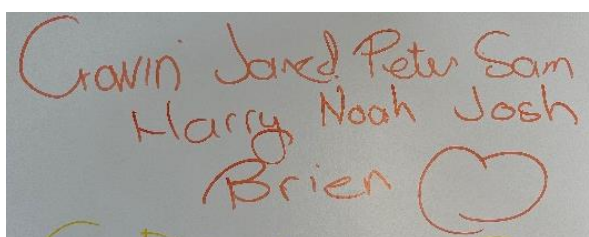 Gavin Jared Peter Sam
Harry Noah Josh
Brien